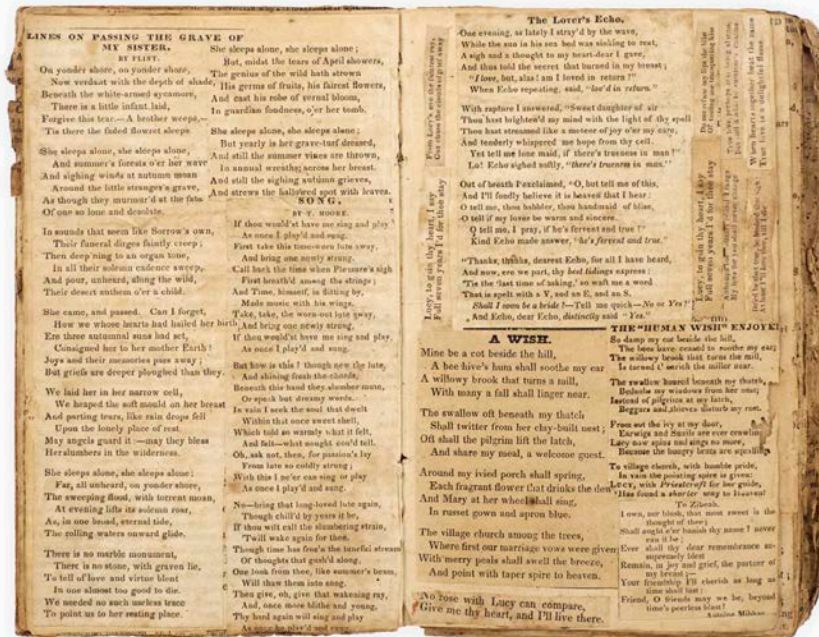 LINES ON PASSING THE GRAVE OF
MY SISTER.
BY FLINT.
On yonder shore, on yonder shore,
Now verdant with the depth of shade,
Beneath the white-armed sycamore,
There is a little infant laid,
Forgive this tear.—A brother weeps,—
'Tis there the faded flowret sleeps.
She sleeps alone, she sleeps alone,
And summer's forests o'er her wave
And sighing winds at autumn moan
Around the little stranger's grave,
As though they murmur'd at the fate
Of one so lone and desolate.
In sounds that seem like Sorrow's own,
Their funeral dirges faintly creep;
Then deep'ning to an organ tone,
In all their solemn cadence sweep,
And pour, unheard, along the wild,
Their desert anthem o'er a child.
She came, and passed. Can I forget,
How we whose hearts had hailed her birth,
Ere three autumnal suns had set,
Consigned her to her mother Earth!
Joys and their memories pass away;
But griefs are deeper ploughed than they.
We laid her in her narrow cell,
We heaped the soft mould on her breast
And parting tears, like rain drops fell
Upon the lonely place of rest.
May angels guard it:—may they bless
Her slumbers in the wilderness.
She sleeps alone, she sleeps alone;
Far, all unheard, on yonder shore,
The sweeping flood, with torrent moan,
At evening lifts its solemn roar,
As, in one broad, eternal tide,
The rolling waters onward glide.
There is no marble monument,
There is no stone, with graven lie,
To tell of love and virtue blent
In one almost too good to die.
We needed no such useless trace
To point us to her resting place.
She sleeps alone, she sleeps alone;
But, midst the tears of April showers,
The genius of the wild hath strown
His germs of fruits, his fairest flowers,
And cast his robe of vernal bloom,
In guardian fondness, o'er her tomb.
She sleeps alone, she sleeps alone;
But yearly is her grave-turf dressed,
And still the summer vines are thrown,
In annual wreaths, across her breast.
And still the sighing autumn grieves,
And strews the hallowed spot with leaves.
SONG.
BY T. MOORE.
If thou would'st have me sing and play
As once I play'd and sung,
First take this time-worn lute away,
And bring one newly strung.
Call back the time when Pleasure's sigh
First breath'd among the strings;
And Time, himself, in flitting by,
Made music with his wings.
Take, take, the worn-out lute away,
And bring one newly strung,
If thou would'st have me sing and play,
As once I play'd and sung.
But how is this? though new the lute,
And shining fresh the chords,
Beneath this hand they slumber mute,
Or speak but dreamy words.
In vain I seek the soul that dwelt
Within that once sweet shell,
Which told so warmly what it felt,
And felt—what nought could tell.
Oh, ask not, then, for passion's lay
From late so coldly strung;
With this I ne'er can sing or play
As once I play'd and sung.
No—bring that long-loved lute again,
Though chill'd by years it be,
If thou wilt call the slumbering strain,
'Twill wake again for thee.
Though time has froz'n the tuneful stream
Of thoughts that gush'd along,
One look from thee, like summer's beam,
Will thaw them into song.
Then give, oh, give that wakening ray,
And, once more blithe and young,
Thy bard again will sing and play
As once he play'd and sung.
The Lover's Echo.
One evening, as lately I stray'd by the wave,
While the sun in his sea bed was sinking to rest,
A sigh and a thought to my heart-dear I gave,
And thus told the secret that burned in my breast;
"I love, but, alas! am I loved in return?"
When Echo repeating, said, "lov'd in return."
With rapture I answered, "Sweet daughter of air
Thou hast brighten'd my mind with the light of thy spell
Thou hast streamed like a meteor of joy o'er my care,
And tenderly whispered me hope from thy cell.
Yet tell me lone maid, if there's trueness in man?"
Lo! Echo sighed softly, "there's trueness in man."
Out of breath I exclaimed, "O, but tell me of this,
And I'll fondly believe it is heaven that I hear:
O tell me, thou babbler, thou handmaid of bliss,
O tell if my lover be warm and sincere.
O tell me, I pray, if he's fervent and true!"
Kind Echo made answer, "he's fervent and true."
"Thanks, thanks, dearest Echo, for all I have heard,
And now, ere we part, thy best tidings express:
'Tis the 'last time of asking,' so waft me a word
That is spelt with a Y, and an E, and an S.
Shall I soon be a bride?—Tell me quick—No or Yes?"
And Echo, dear Echo, distinctly said "Yes."
Lucy, to gain thy heart, I say
Full seven years I'd for thee stay
Lucy, to gain thy heart, I say
Full seven years I'd for thee stay
When hearts together beat the same
True love is a delightful flame
A WISH.
Mine be a cot beside the hill,
A bee hive's hum shall soothe my ear
A willowy brook that turns a mill,
With many a fall shall linger near.
The swallow oft beneath my thatch
Shall twitter from her clay-built nest;
Oft shall the pilgrim lift the latch,
And share my meal, a welcome guest.
Around my ivied porch shall spring,
Each fragrant flower that drinks the dew,
And Mary at her wheel shall sing,
In russet gown and apron blue.
The village church among the trees,
Where first our marriage vows were given
With merry peals shall swell the breeze,
And point with taper spire to heaven.
No rose with Lucy can compare,
Give me thy heart, and I'll live there.
THE "HUMAN WISH" ENJOYE
So damp my cot beside the hill,
The bees have ceased to soothe my ear;
The willowy brook that turns the mill,
Is turned t' enrich the miller near.
The swallow housed beneath my thatch,
Bedaubs my windows from her nest;
Instead of pilgrims at my latch,
Beggars and thieves disturb my rest.
From out the ivy at my door,
Earwigs and Snails are ever crawling
Lucy now spins and sings no more,
Because the hungry brats are squalling
To village church, with humble pride,
In vain the pointing spire is given;
Lucy, with Priestcraft for her guide,
Has found a shorter way to Heaven!
To Zibeah.
I own, nor blush, that most sweet is the
thought of thee;
Shall aught e'er banish thy name? never
can it be;
Ever shall thy dear remembrance so-
supremely blest
Remain, in joy and grief, the partner of
my breast;—
Your friendship I'll cherish as long as
time shall last;
Friend, O friends may we be, beyond
time's peerless blast!